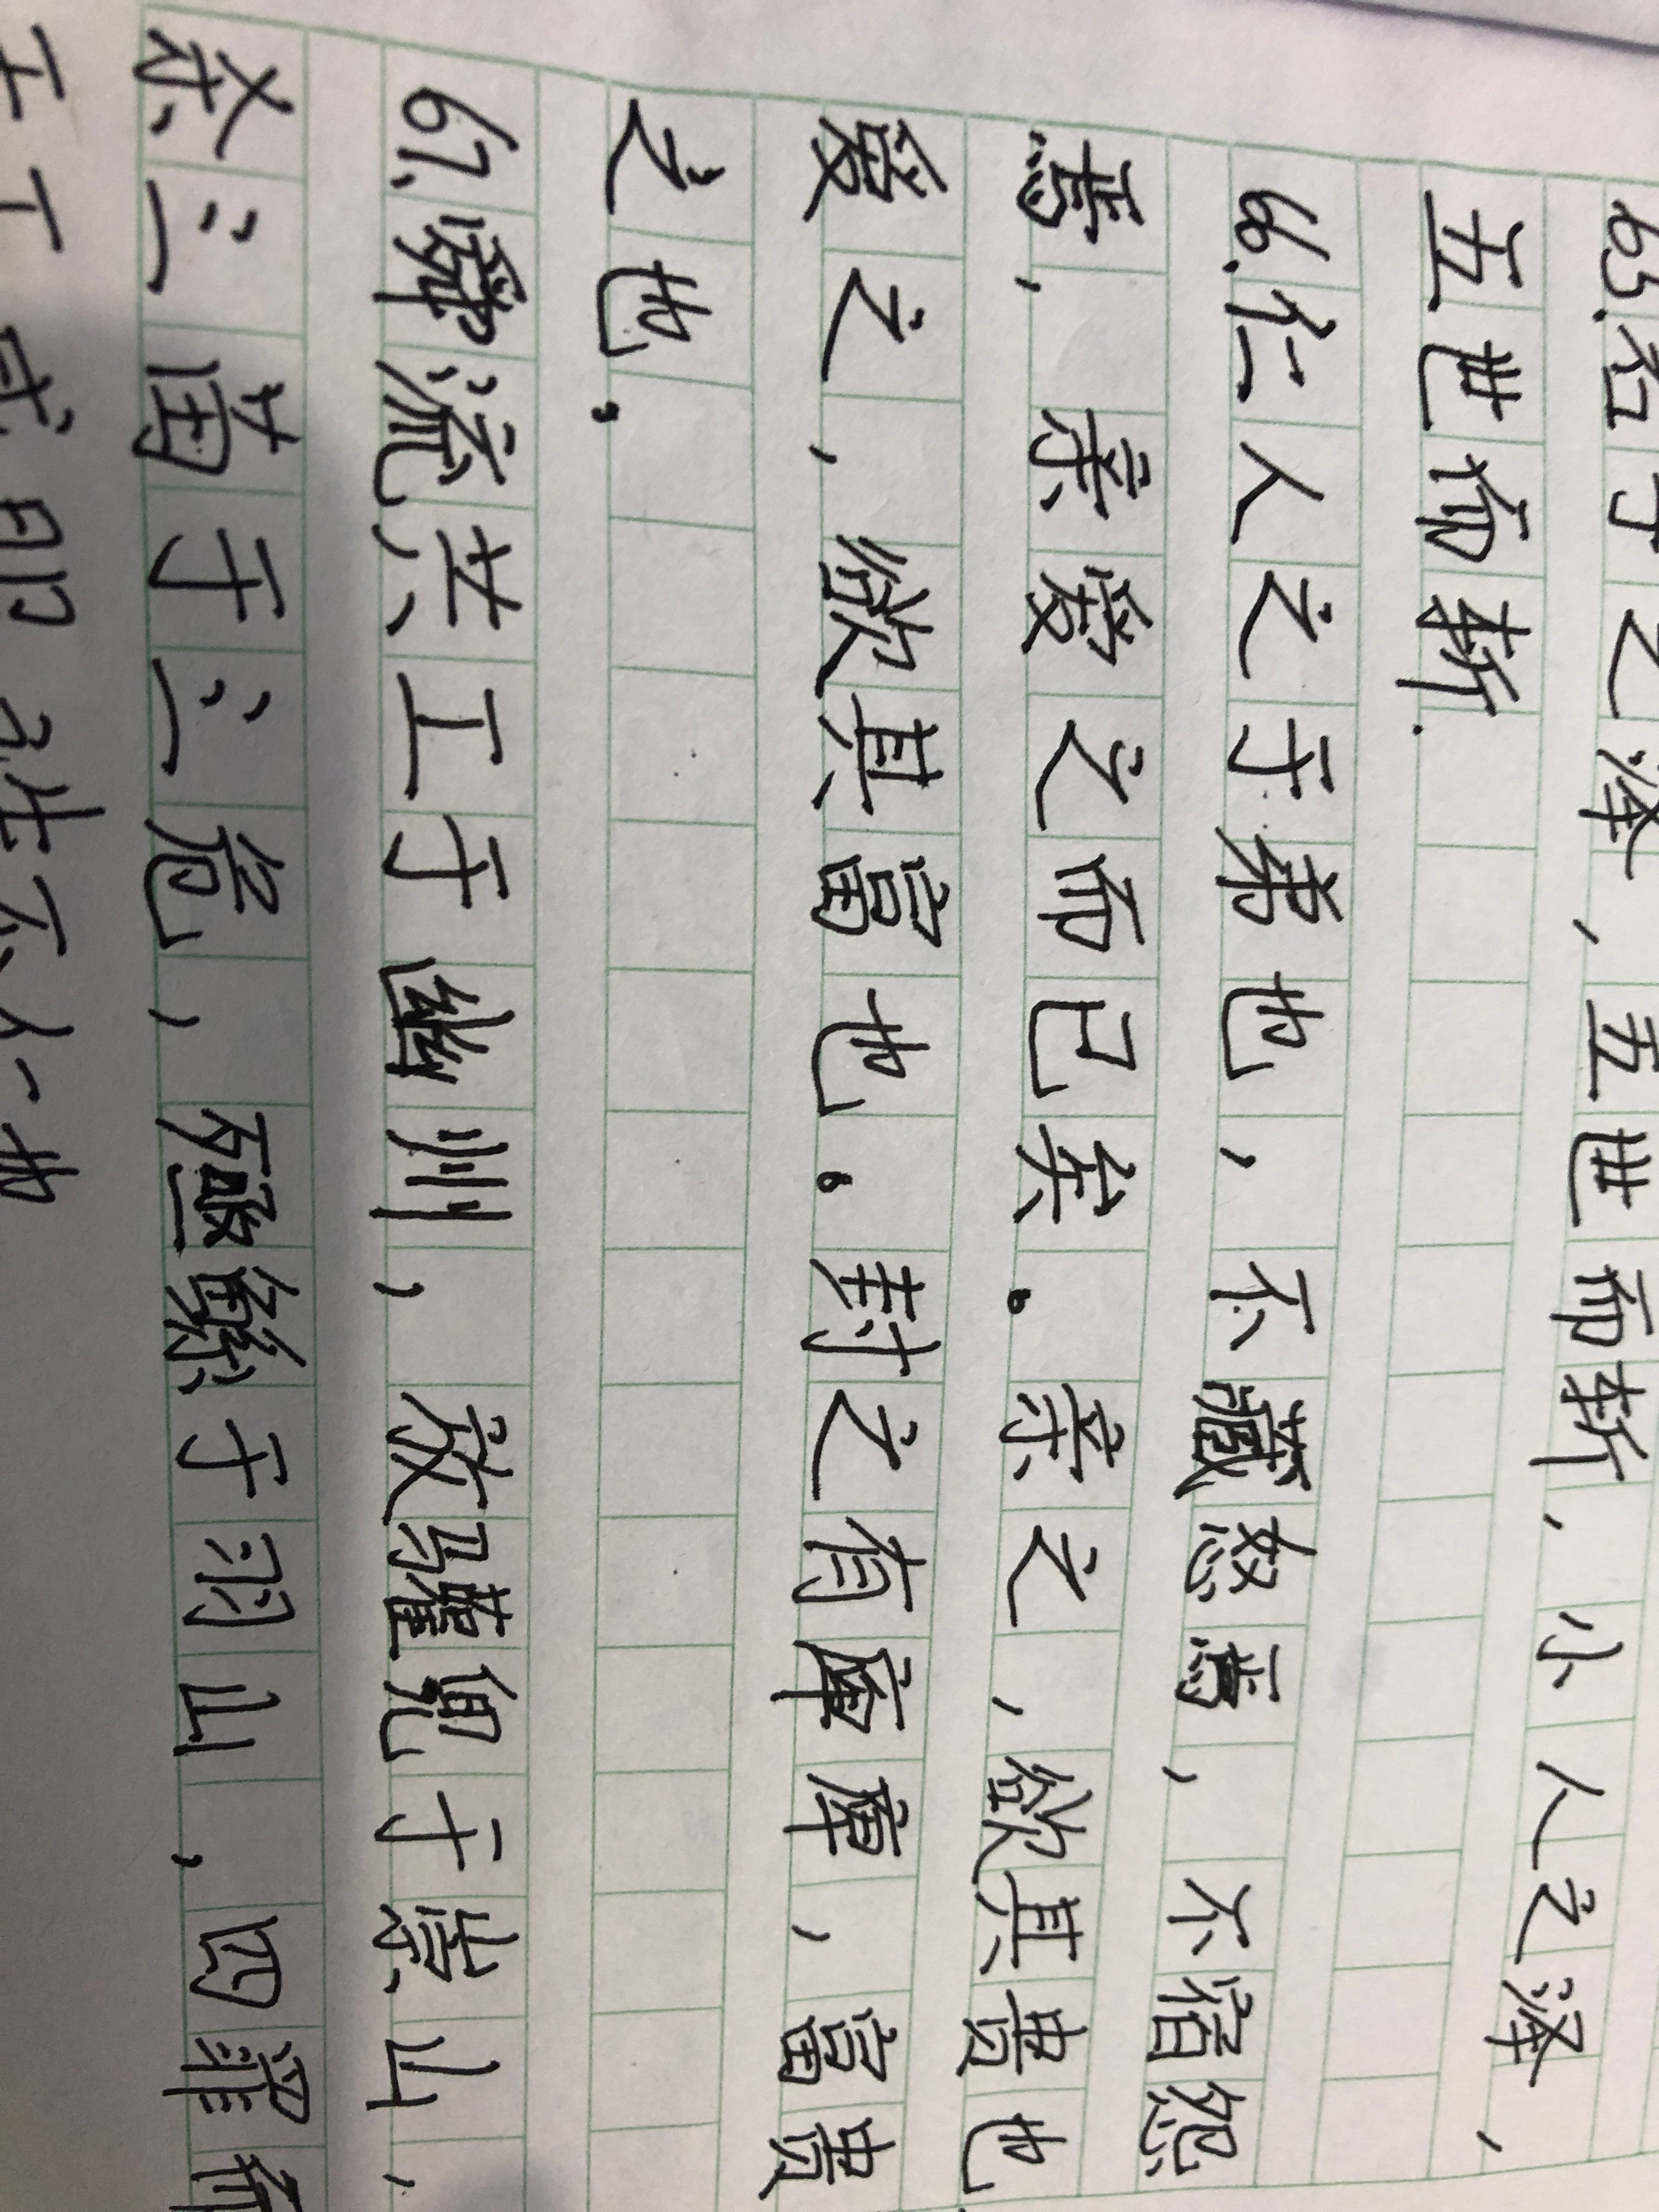 65.君子之泽,五世而斩,小人之泽,
五世而斩.
66.仁人之于弟也,不藏怒焉,不宿怨
焉,亲爱之而已矣。亲之,欲其贵也
爱之,欲其富也。封之有庳庳,富贵
之也。
67.舜流共工于幽州,放驩兜于崇山,
杀三苗于三危,殛鲧于羽山,四罪而
天下咸服 诛不仁也